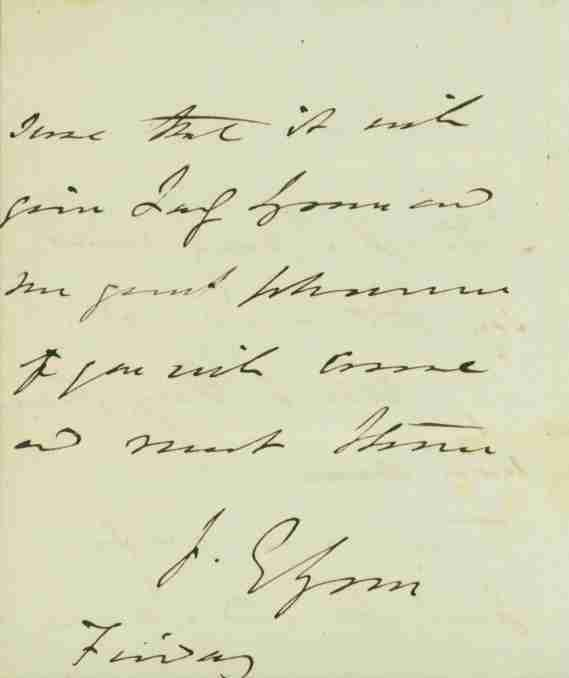 that it will
give Lady and
me great pleasure
if you will come
and meet them
J.
Friday